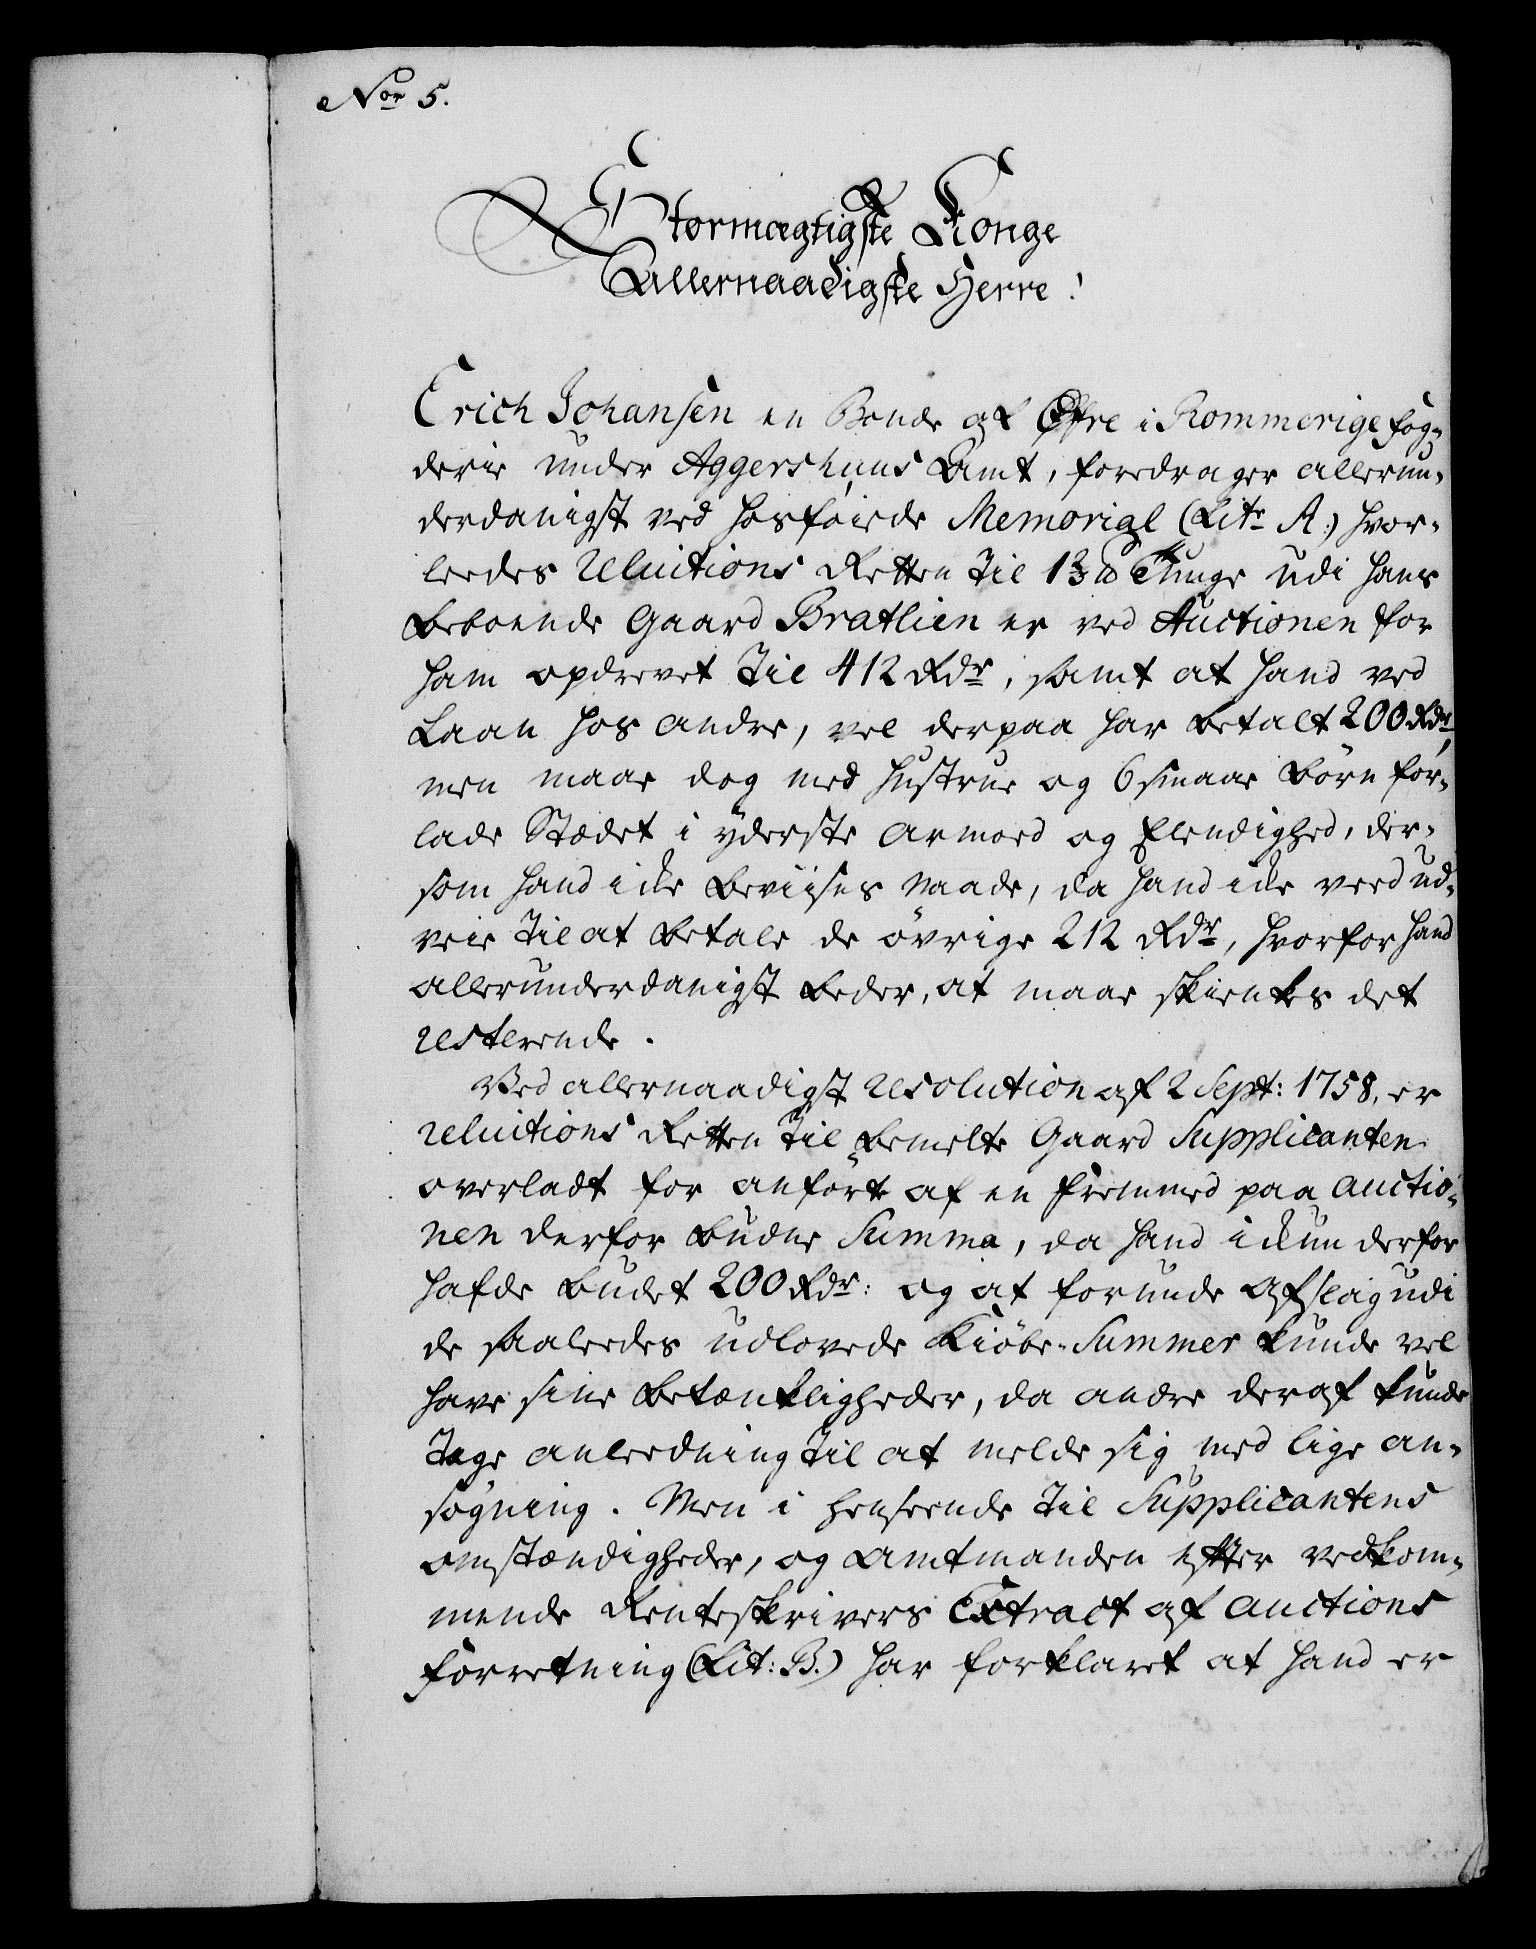 Nor 5.
Stormægtigste Konge
Allernaadigste Herre!
Erich Johansen en Bonde af Øfre i Rommerige fog-
derie under Aggershuus Amt, foredrager allerun-
derdanigst ved hosføiede Memorial (Litr A:) hvor-
leedes reluitions Retten til 1⅔ Tunge udi hans
beboende Gaard Bratlien er ved Auctionen for
ham opdrevet til 412 Rdr, samt at hand ved
Laan hos andre, vel derpaa har betalt 200 Rdr,
men maae dog med Hustrue og 6 smaae Børn for-
lade Stædet i yderste Armoed og Elendighed, der-
som hand icke beviises Naade, da hand icke veed ud-
veie til at betale de øvrige 212 Rdr, hvorfor hand
allerunderdanigst beder, at maae skienkes det
resterende.
Ved allernaadigst resolution af 2 Sept: 1758. er
reluitions Retten til bemelte Gaard Supplicanten
overladt for anførte af en fremmed paa auctio-
nen derfor budne Summa, da hand ickun derfor
hafde budet 200 Rdr: og at forunde Afslag udi
de saaleedes udlovede Kiøbe-Summer kunde vel
have sine betænkligheder, da andre deraf kunde
tage anleedning til at melde sig med lige an-
søgning. Men i henseende til Supplicantens
omstændigheder, og Amtmanden efter vedkom-
mende Renteskrivers Extract af auctions
forretning (Lit: B.) har forklaret at hand er